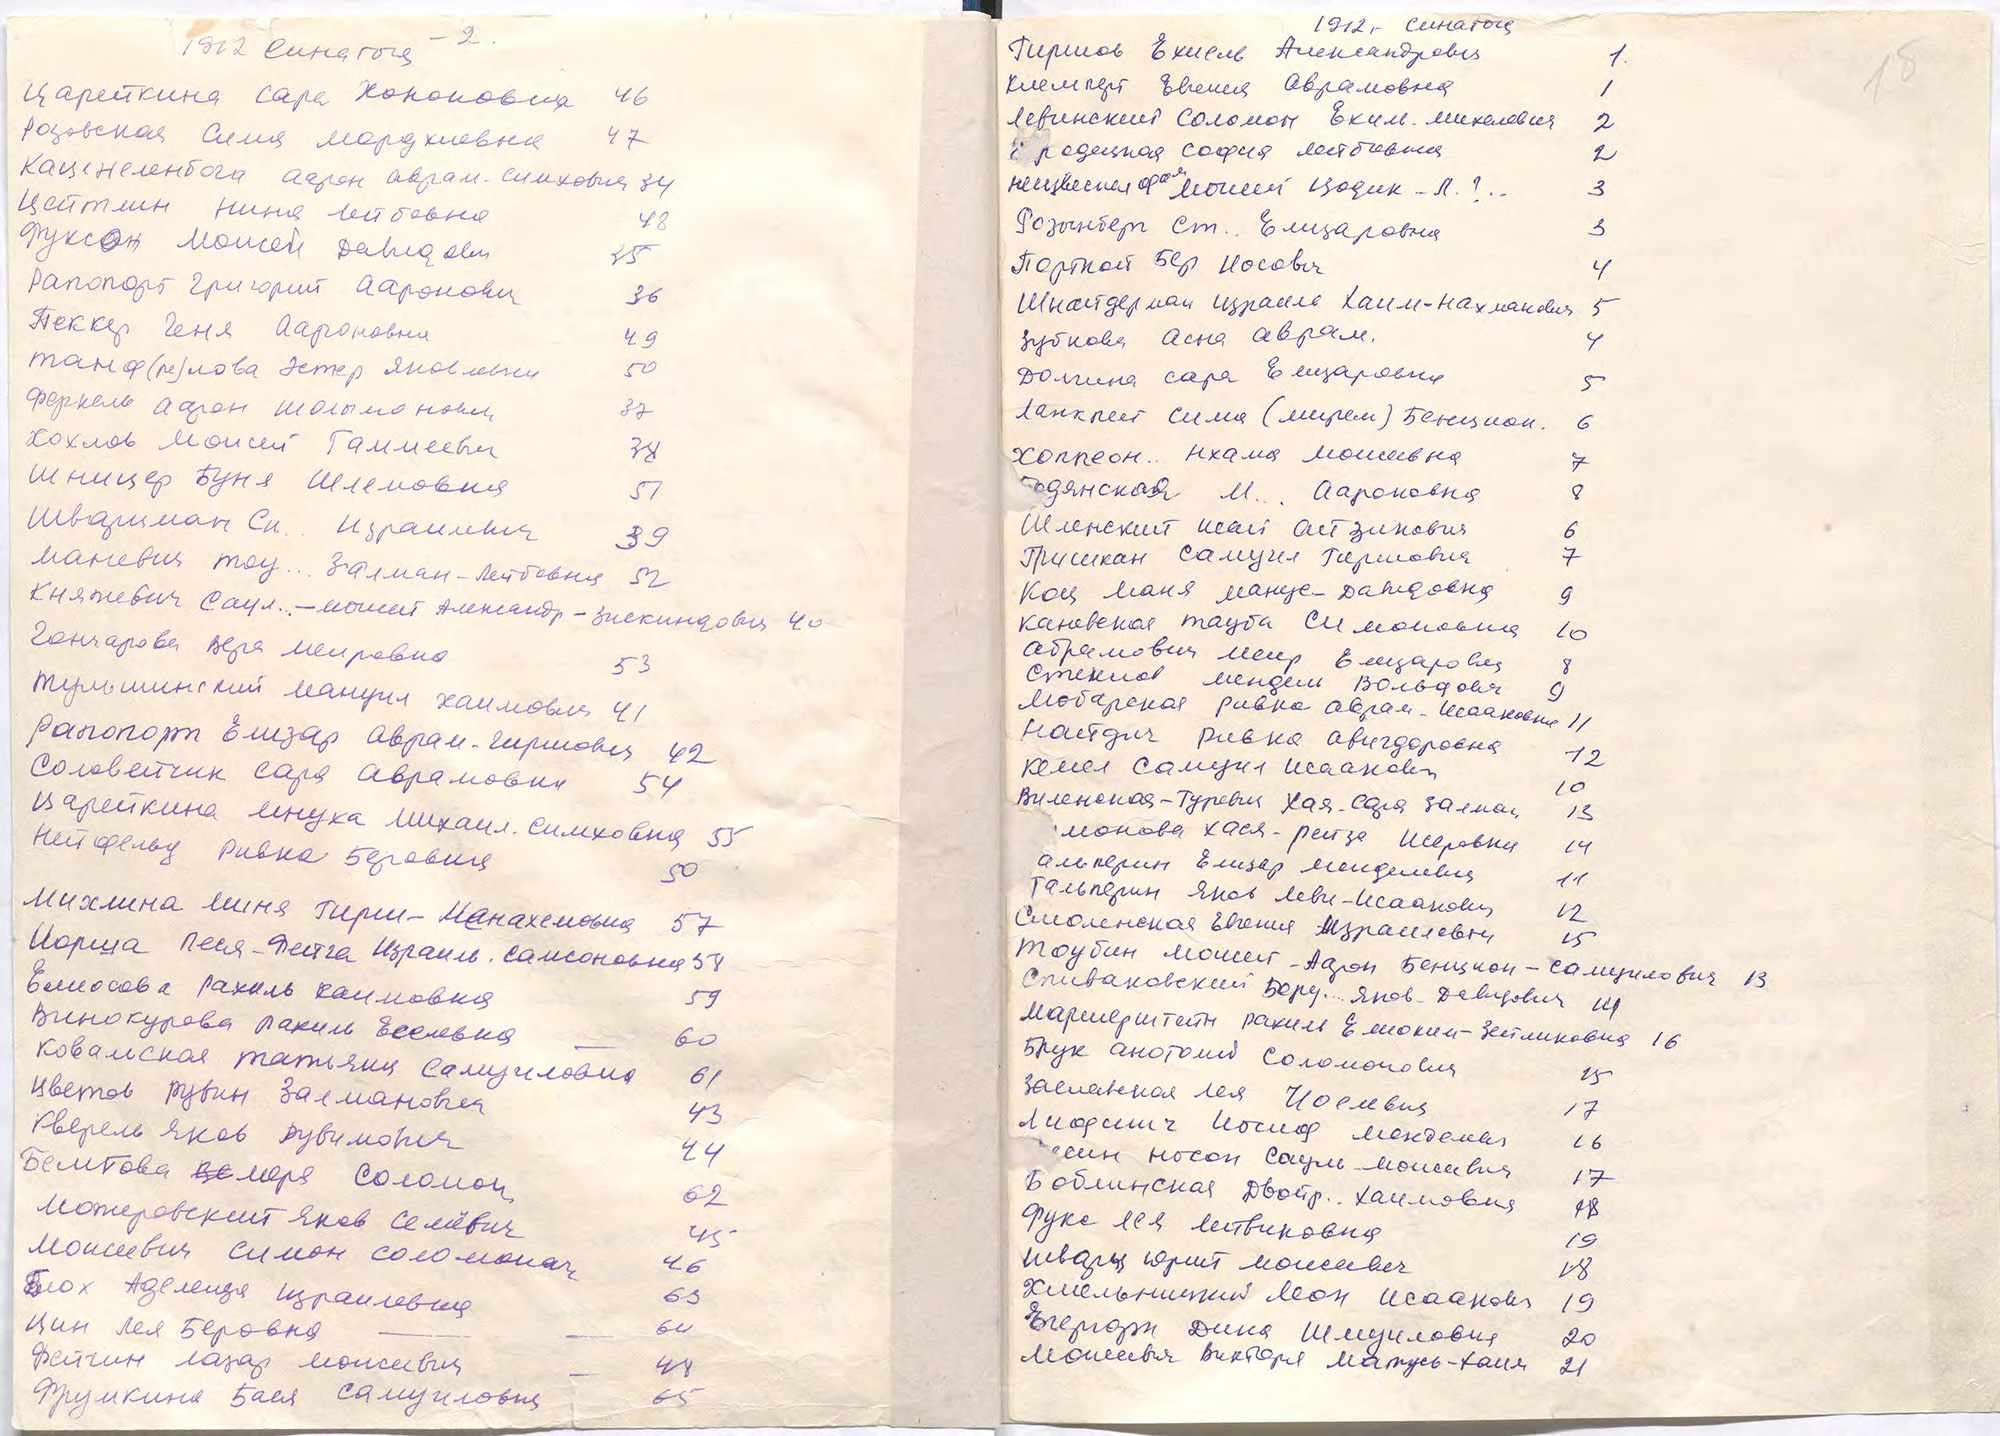 1912 Синагога - 2.
Царейкина Сара Хононовна 46
Розовская Сима Мордхиевна 47
Каценеленбога Аарон Аврам-Симхович 34
Цейтлин Нина Лейбовна 48
Фуксон Моисей Давидович 35
Рапопорт Григорий Ааронович 36
Пеккер Геня Аароновна 49
Танф(ре)лова Эстер Яковлевна 50
Феркель Аарон Шолымонович 37
Хохлов Моисей Гамшеевич 38
Шницер Буня Шлемовна 51
Шварцман Сн.. Израилевич 39
Маневич Тоу... Залман-Лейбовна 52
Княжевич Саул..-Моисей Александр-Зискиндович 40
Гончарова Вера Меировна 53
Тульшинский Мануил Хаимович 41
Рапопорт Елизар Аврам-Гиршович 42
Соловейчик Сара Аврамовна 54
Царейкина Мнуха Михаил.Симховна 55
Нейфельд Ривка Беровна 50
Михлина Миня Гирш-Менахемовна 57
Иорща Песя-Фейга Израиль.Самсоновна 58
Елиосова Рахиль Хаимовна 59
Винокурова Рахиль Еселевна — 60
Ковальская Татьяна Самуиловна 61
Цветов Рувин Залманович 43
Кверель Яков Рувимович 44
Бейтова Мера Соломон 62
Можеровский Яков Семёвич 45
Моисеевич Симон Соломонач 46
Блох Аделеида Израилевна 63
Цин Лея Беровна — — 64
Фейгин Лазар Моисеевич — 48
Фрумкина Бася Самуиловна 65
1912г. Синагога
18
Гиршов Ехиель Александрович 1.
Клемперт Евгения Аврамовна 1
Левинский Соломон Еким.Михелевич 2
родецкая София Лейбовна 2
Неизвестна фам Моисей Цодик-Л.?.. 3
Розынберг Ст.. Елизаровна 3
Портной Бер Иосович 4
Шнайдерман Израиль Хаим-Нахманович 5
Зубкова Асна Аврам. 4
Долгина Сара Елизаровна 5
Ланкрей Сима (Мирем) Бенцион. 6
Холпеон.. Нхама Моисеевна 7
одянская М... Аароновна 8
Шленский Шай Айзикович 6
Гришкан Самуил Гиршович 7
Кац Маня Мануе-Давидовна 9
Каневская Тауба Симоновна 10
Абрамович Меир Елизарович 8
Стеклов Мендель Вольфович 9
Мобарская Ривка Аврам-Исааковна 11
Найдич Ривка Авигдоровна 12
Кемел Самуил Исаакович 10
Виленская-Гуревич Хая-Сара Залман 13
монова Хася-Рейза Шеровна 14
альперин Елизар Менделевич 11
Гальперин Яков Леви-Исаакович 12
Смоленская Евгения Израилевна 15
Тоубин Моисей-Аарон Бенцион-Самуилович 13
Спиваковский Бору... Яков-Давидович 14
Маршерштейн Рахиль Елиоким-Зейликовна 16
Брук Анотолий Соломонович 15
Заславская Лея Иоселевна 17
Лиосич Иосиф Менделевич 16
есин Носон Сауль-Моисеевич 17
Боблинская Двойр.. Хаимовна 18
Фукс Лея Литвиковна 19
Шварц Юрий Моисеевич 18
Хмельницкий Леон Исаакович 19
Егергорн Дина Шмуиловна 20
Моисеевич Виктория Матусь-Хаим 21